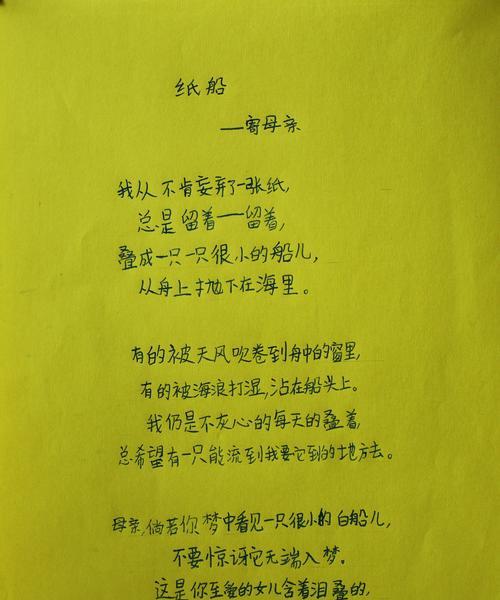 纸船
——寄母亲
我从不肯妄弃了一张纸,
总是留着——留着,
叠成一只一只很小的船儿,
从舟上抛下在海里。
有的被天风吹卷到舟中的窗里,
有的被海浪打湿,沾在船头上。
我仍是不灰心的每天的叠着,
总希望有一只能流到我要它到的地方去。
母亲,倘若你梦中看见一只很小的白船儿,
不要惊讶它无端入梦。
这是你至爱的女儿含着泪叠的,